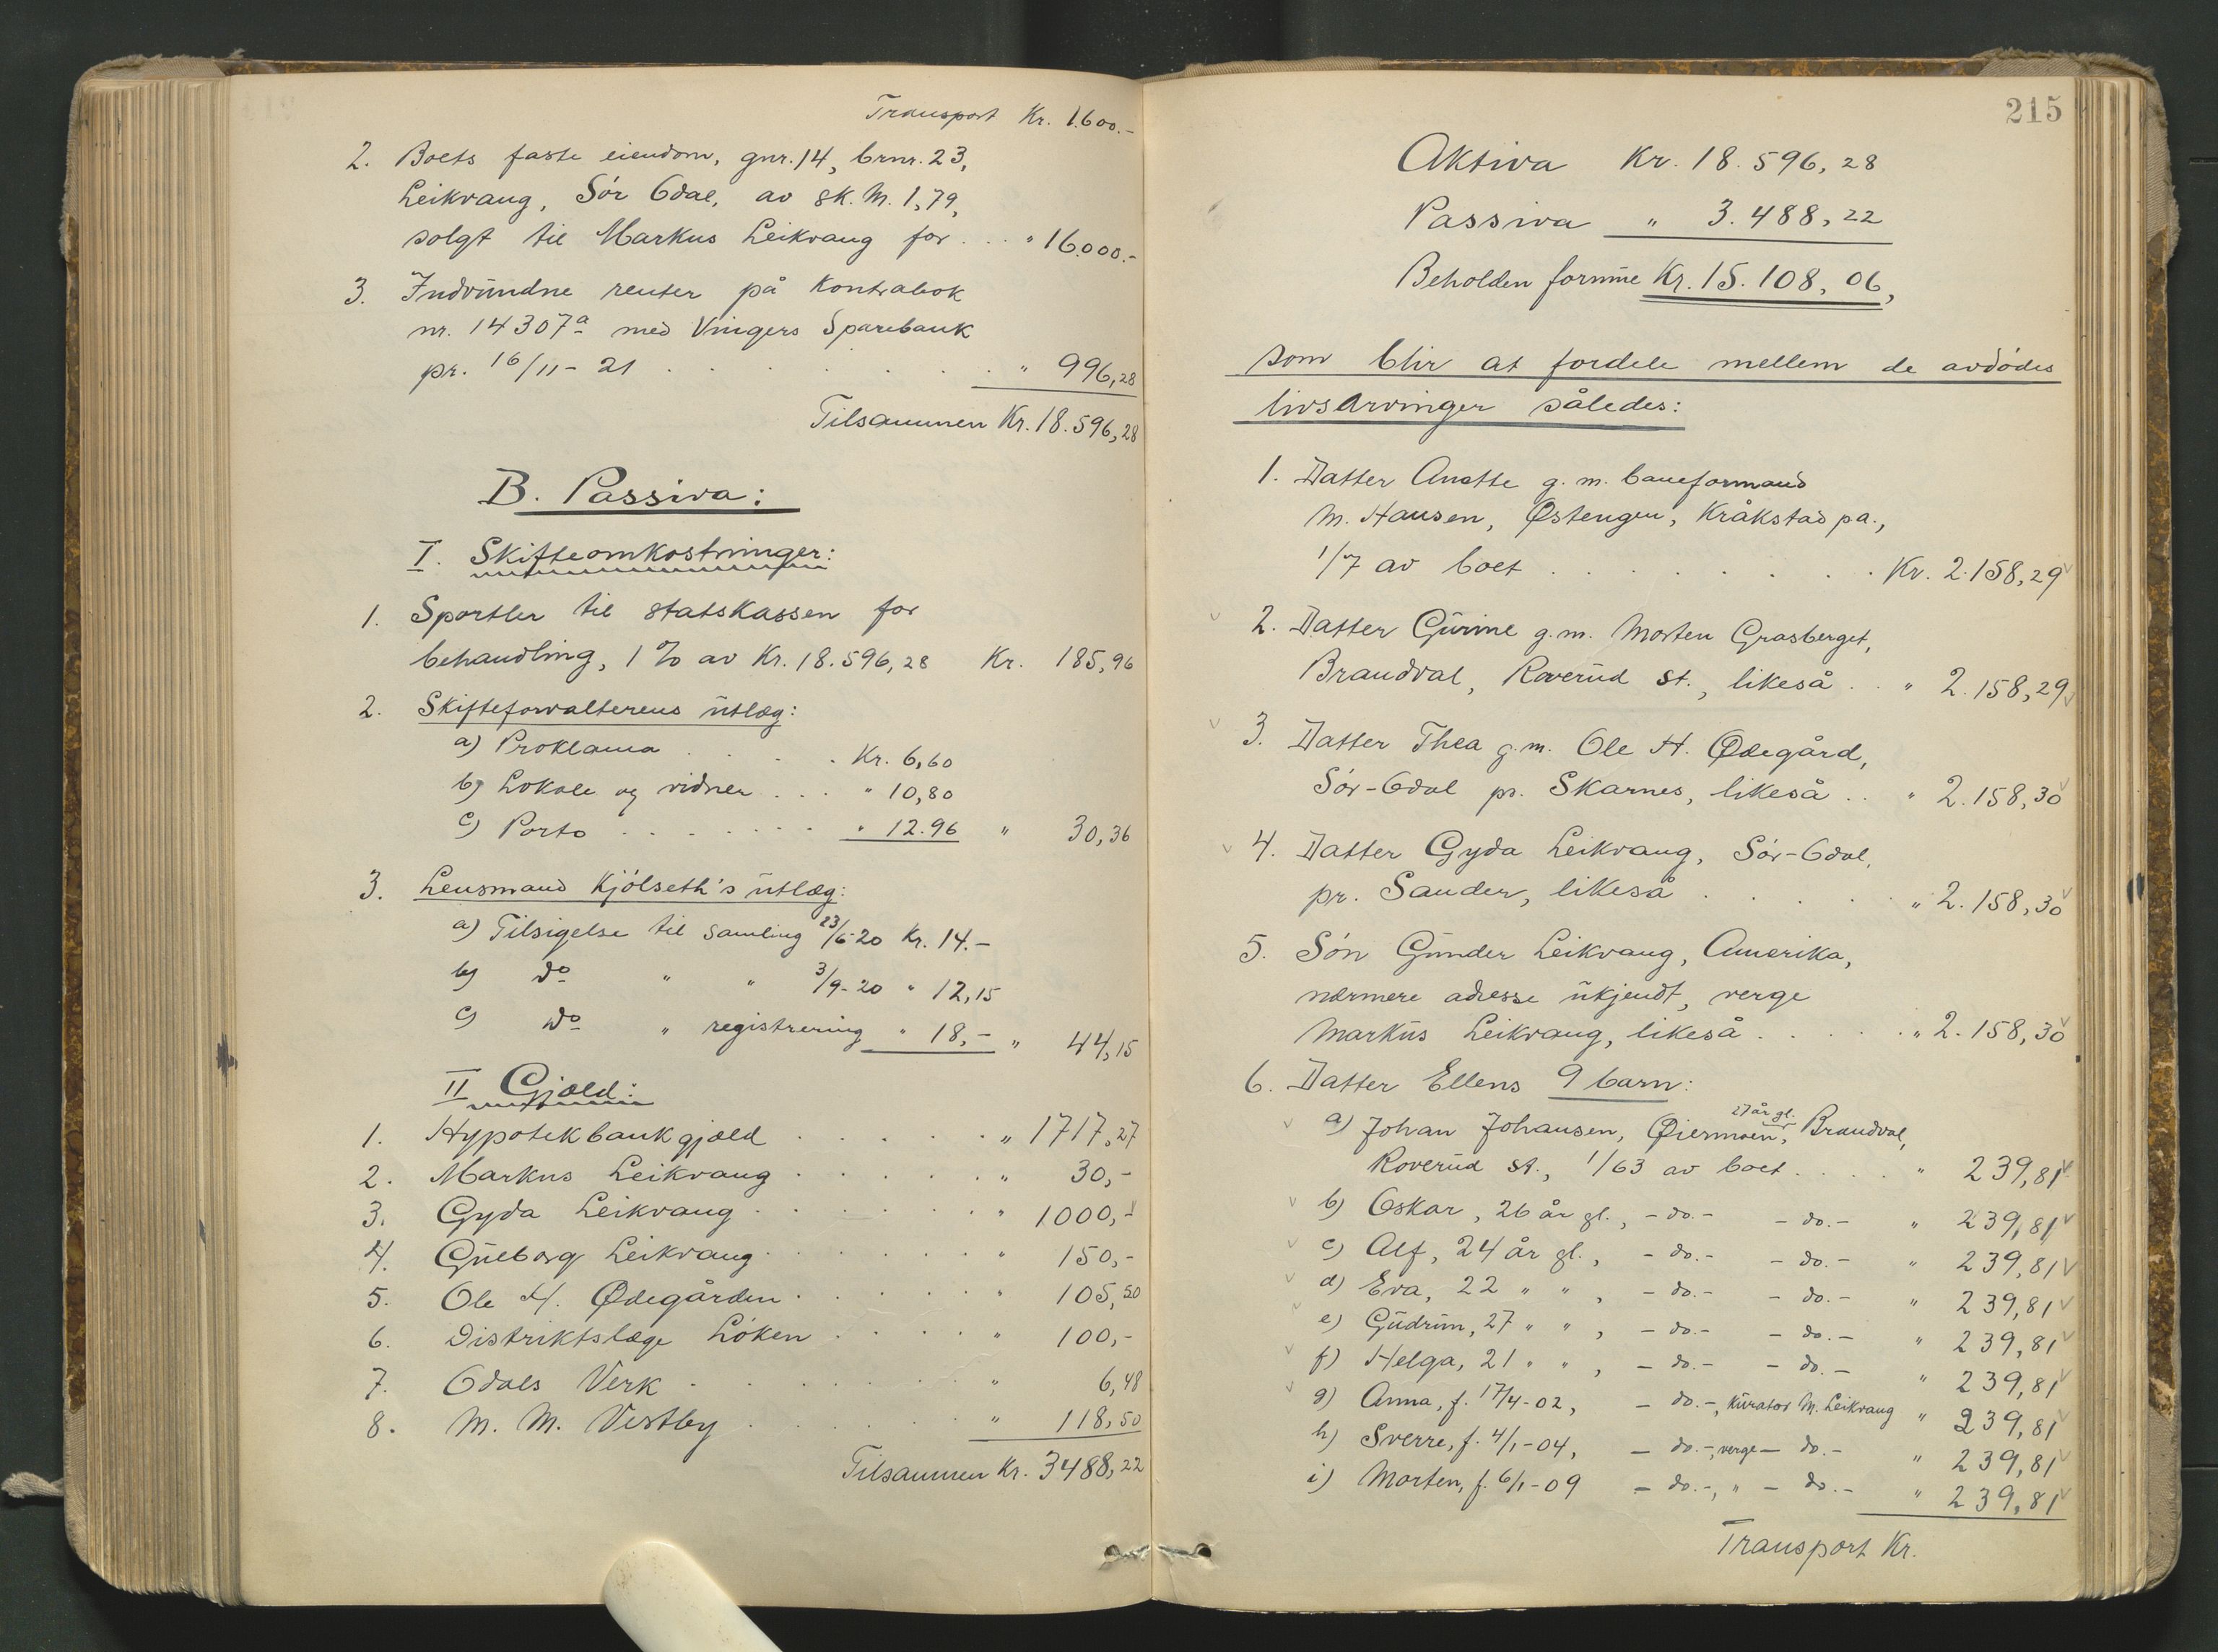 Transport Kr. 1600.-
2. Boets faste eiendom, gnr. 14, brnr. 23,
Leikvang, Sör Odal, av sk. M. 1,79,
solgt til Markus Leikvang for . . . " 16000.-
3. Indvundne renter på Kontrabok
nr. 14307a med Vingers Sparebank
pr. 16/11-21 . . . . . . . " 996,28
Tilsammen Kr. 18.596,28
B. Passiva:
I. Skifteomkostninger:
1. Sportler til statskassen for
behandling, 1 % av Kr. 18.596,28 Kr. 185,96
2. Skifteforvalterens utlæg:
a) Proklama . . . . Kr. 6,60
b) Lokale og vidner . . . " 10,80
c) Porto . . . . . . . " 12.96 " 30,36
3. Lensmand Kjölseth's utlæg:
a) Tilsigelse til samling 23/6-20 Kr. 14.-
b) do " " 3/9-20 " 12,15
c) do " registrering " 18,- " 44,15
II Gjæld:
1. Hypotekbankgjæld . . . . . " 1717,27
2. Markus Leikvang . . . . . " 30,-
3. Gyda Leikvang . . . . . . " 1000,-
4. Gulborg Leikvang . . . . . . " 150,-
5. Ole H. Ødegården . . . . . " 105,50
6. Distriktslæge Löken . . . . " 100,-
7. Odals Verk . . . . . . . " 6,48
8. M. M. Vestby . . . . . . " 118,50
Tilsammen Kr. 3488,22
215
Aktiva Kr. 18.596,28
Passiva " 3.488,22
Beholden formue Kr. 15.108,06,
som blir at fordele mellem de avdödes
livsarvinger således:
1. Datter Anette g. m. baneformand
M. Hansen, Østengen, Kråkstad pa.,
1/7 av boet . . . . . . . Kr. 2.158,29
2. Datter Gurine g.m. Morten Grasberget,
Brandval, Roverud st., likeså . . " 2.158,29
3. Datter Thea g.m. Ole H. Ødegård,
Sör-Odal pr. Skarnes, likeså . . " 2.158,30
4. Datter Gyda Leikvang, Sör-Odal,
pr. Sander, likeså . . . . . " 2.158,30
5. Sön Gunder Leikvang, Amerika,
nærmere adresse ukjendt, verge
Markus Leikvang, likeså . . . . . " 2.158,30
6. Datter Ellens 9 barn:
27 år gl.
a) Johan Johansen, Øiermoen, Brandval,
Roverud st., 1/63 av boet . . . . " 239,81
b) Oskar, 26 år gl., -do.- -do.- " 239,81
c) Alf, 24 år gl., -do.- -do.- " 239,81
d) Eva, 22 " " , -do.- -do.- " 239,81
e) Gudrun, 27 " " , -do.- -do.- " 239,81
f) Helga, 21 " " , -do.- -do.- " 239,81
g) Anna, f. 17/4-02, -do.-, Kurator M. Leikvang " 239,81
h) Sverre, f. 4/1-04, -do.-, verge -do.- " 239,81
i) Morten, f. 6/1-09 -do.-, " -do.- " 239,81
Transport Kr.